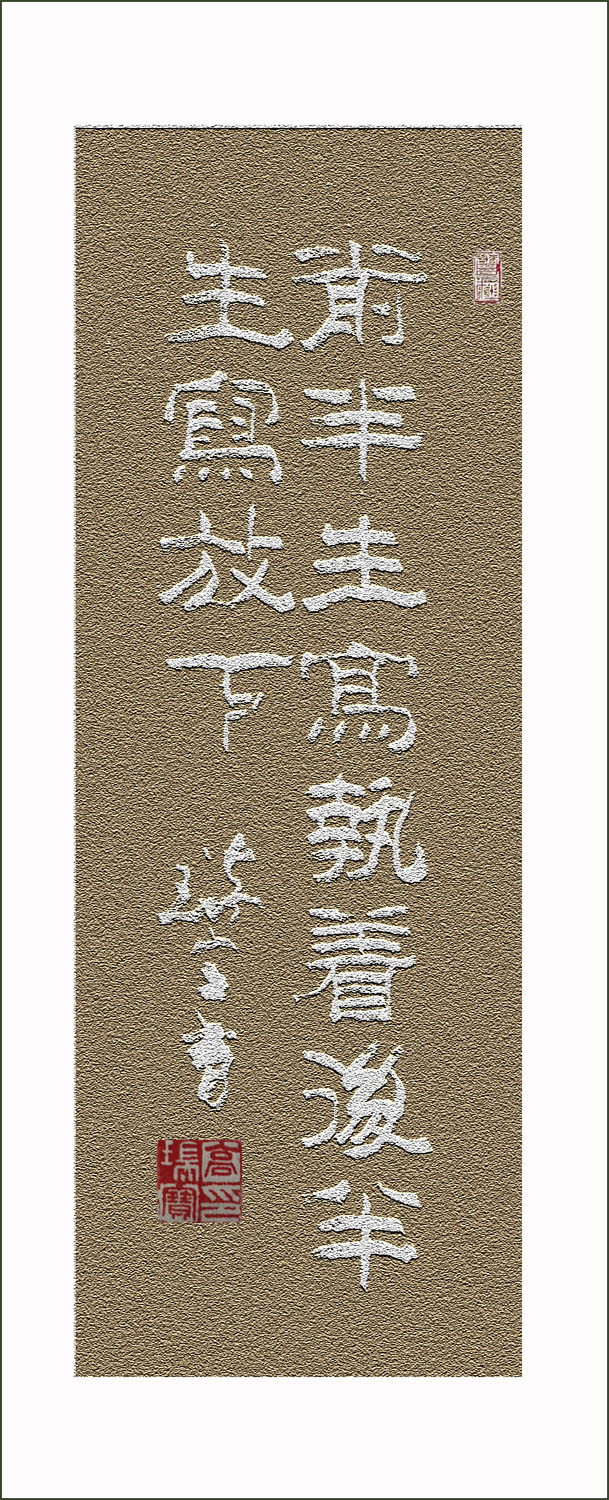 前半生寫執着後半
生寫放下
書